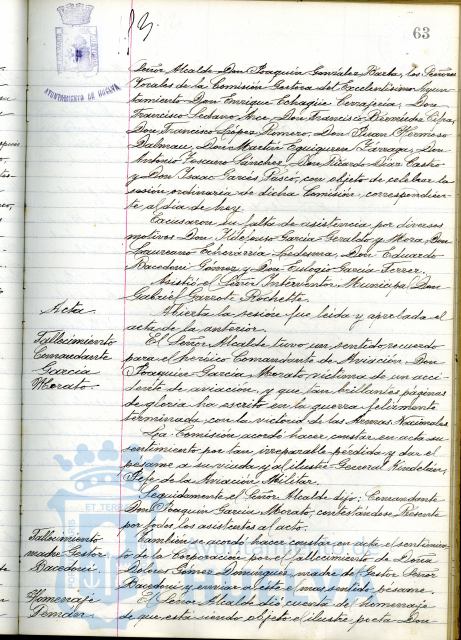 63
AYUNTAMIENTO DE HUELVA
Señor Alcalde Don Joaquín González Barba, los Señores
Vocales de la Comisión Gestora del Excelentísimo Ayun-
tamiento Don Enrique Echagüe Don
Francisco Sedano Arce Don Francisco Bermúdez
Don Francisco López Romero, Don Juan
Dalmau, Don Martín Eguiguren Don
Antonio Toscano Sánchez Don Ricardo Díaz Castro
y Don Isaac García con objeto de celebrar la
sesión ordinaria de dicha Comisión, correspondien-
te al día de hoy.
Excusaron su falta de asistencia por diversos
motivos Don Ildefonso García Geraldo y Mora, Don
Laureano Echevarría Ledesma, Don Eduardo
Gómez y Don Eulogio García Ferrer.
Asistió el Señor Interventor Municipal Don
Gabriel Garrote Rochette.
Acta
Abierta la sesión fue leída y aprobada el
acta de la anterior.
Fallecimiento
Comandante
García
Morato
El Señor Alcalde tuvo un sentido recuerdo
para el heróico Comandante de Aviación Don
Joaquín García Morato, víctima de un acci-
dente de aviación, y que tan brillantes páginas
de gloria ha escrito en la guerra felizmente
terminada con la victoria de las Armas Nacionales
La Comisión acordó hacer constar en acta su
sentimiento por tan irreparable pérdida y dar el
pésame a su viuda y al ilustre General Kindelán,
Jefe de la Aviación Militar.
Seguidamente el Señor Alcalde dijo: Comandante
Don Joaquín García Morato, contestándose Presente
por todos los asistentes al acto.
Fallecimiento
madre Gestor
También se acordó hacer constar en acta el sentimien-
to de la Corporación por el fallecimiento de Doña
Dolores Gómez Domínguez madre del Gestor Señor
y enviar a éste el mas sentido pésame.
Homenaje
Pemán
El Señor Alcalde dió cuenta del homenaje
de que está siendo objeto el ilustre poeta Don